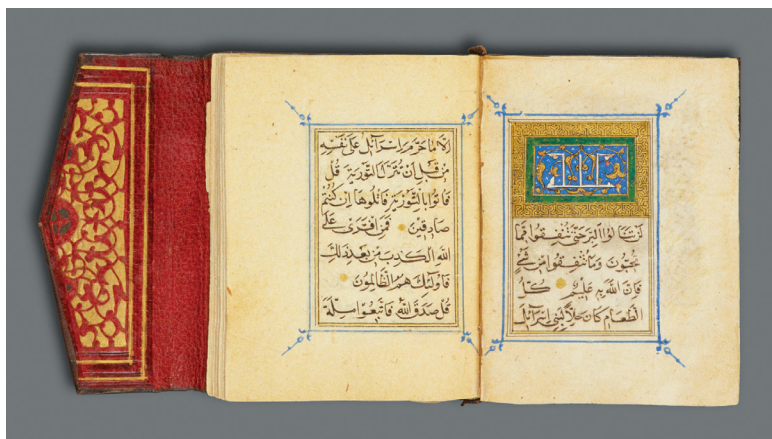 لن تنالوا البر حتى تنفقوا مما
تحبون وما تنفقوا من شيء
فان الله به عليم كل
الطعام كان حلا لبني اسرائيل
الا ما حرم اسرائيل على نفسه
من قبل ان تنزل التورية قل
فاتوا بالتورية فاتلوها ان كنتم
صادقين فمن افترى على
الله الكذب من بعد ذلك
فاولئك هم الظالمون
قل صدق الله فاتبعوا ملة